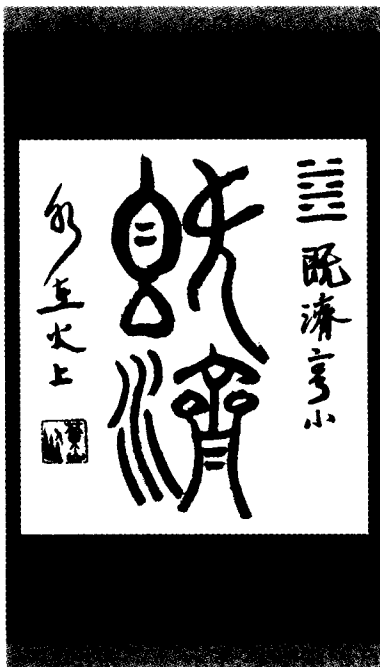 ䷾既濟亨小
既濟
水在火上